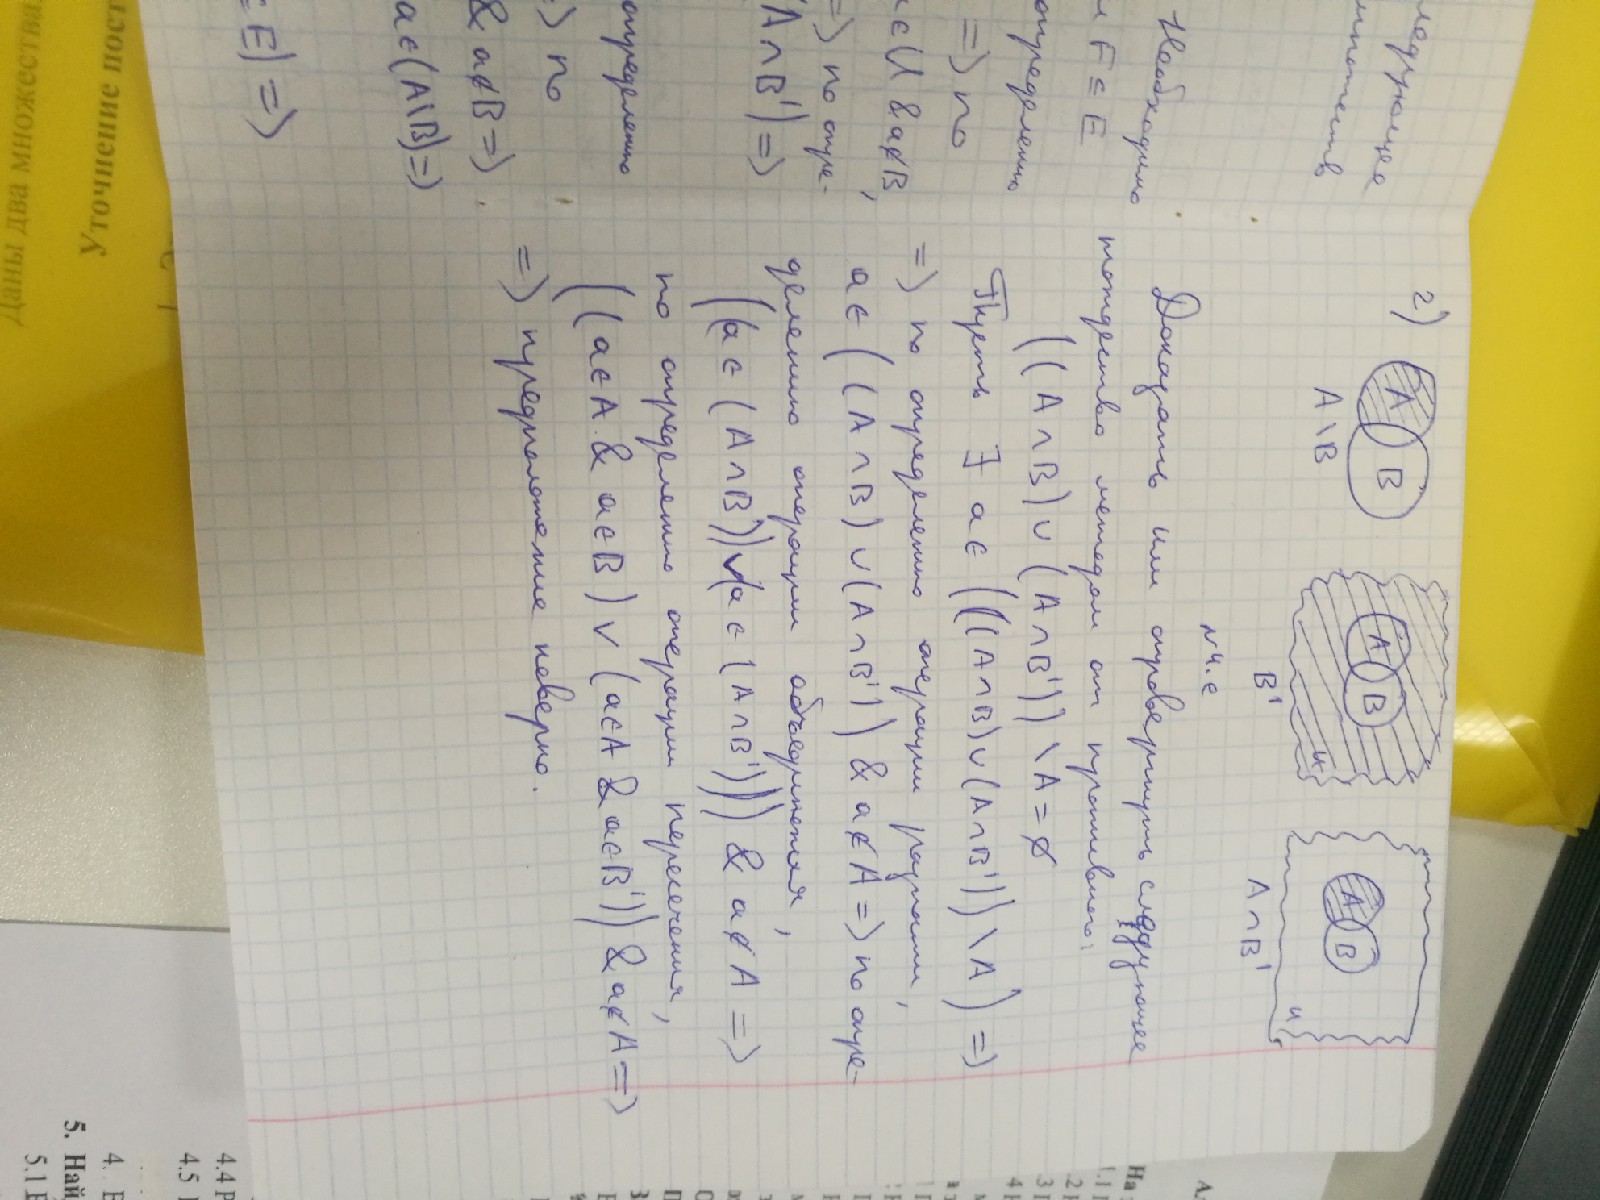 следующее
множеств
Необходимо
и F ⊆ E
определению
=> по
a∈U & a∉B,
=> по опре-
(A∩B')=>
определению
=> по
& a∉B =>
a∈(A\B)=>
⊆ E) =>
2)
A B
A\B
A B
U
B'
A B
U
A∩B'
№4.е
Доказать или опровергнуть следующее
тождество методом от противного:
((A∩B)∪(A∩B'))\A=∅
Пусть ∃ a∈(((A∩B)∪(A∩B'))\A) =>
=> по определению операции разности,
a∈((A∩B)∪(A∩B')) & a∉A => по опре-
делению операции объединения,
((a∈(A∩B))∨(a∈(A∩B'))) & a∉A =>
по определению операции пересечения,
((a∈A & a∈B)∨(a∈A & a∈B')) & a∉A =>
=> предположение неверно.
На
1.1
.2
.3
4
4.4 Р
4.5
4. В
5. Най
5.1 Е
Уточнение пост
Даны два множества